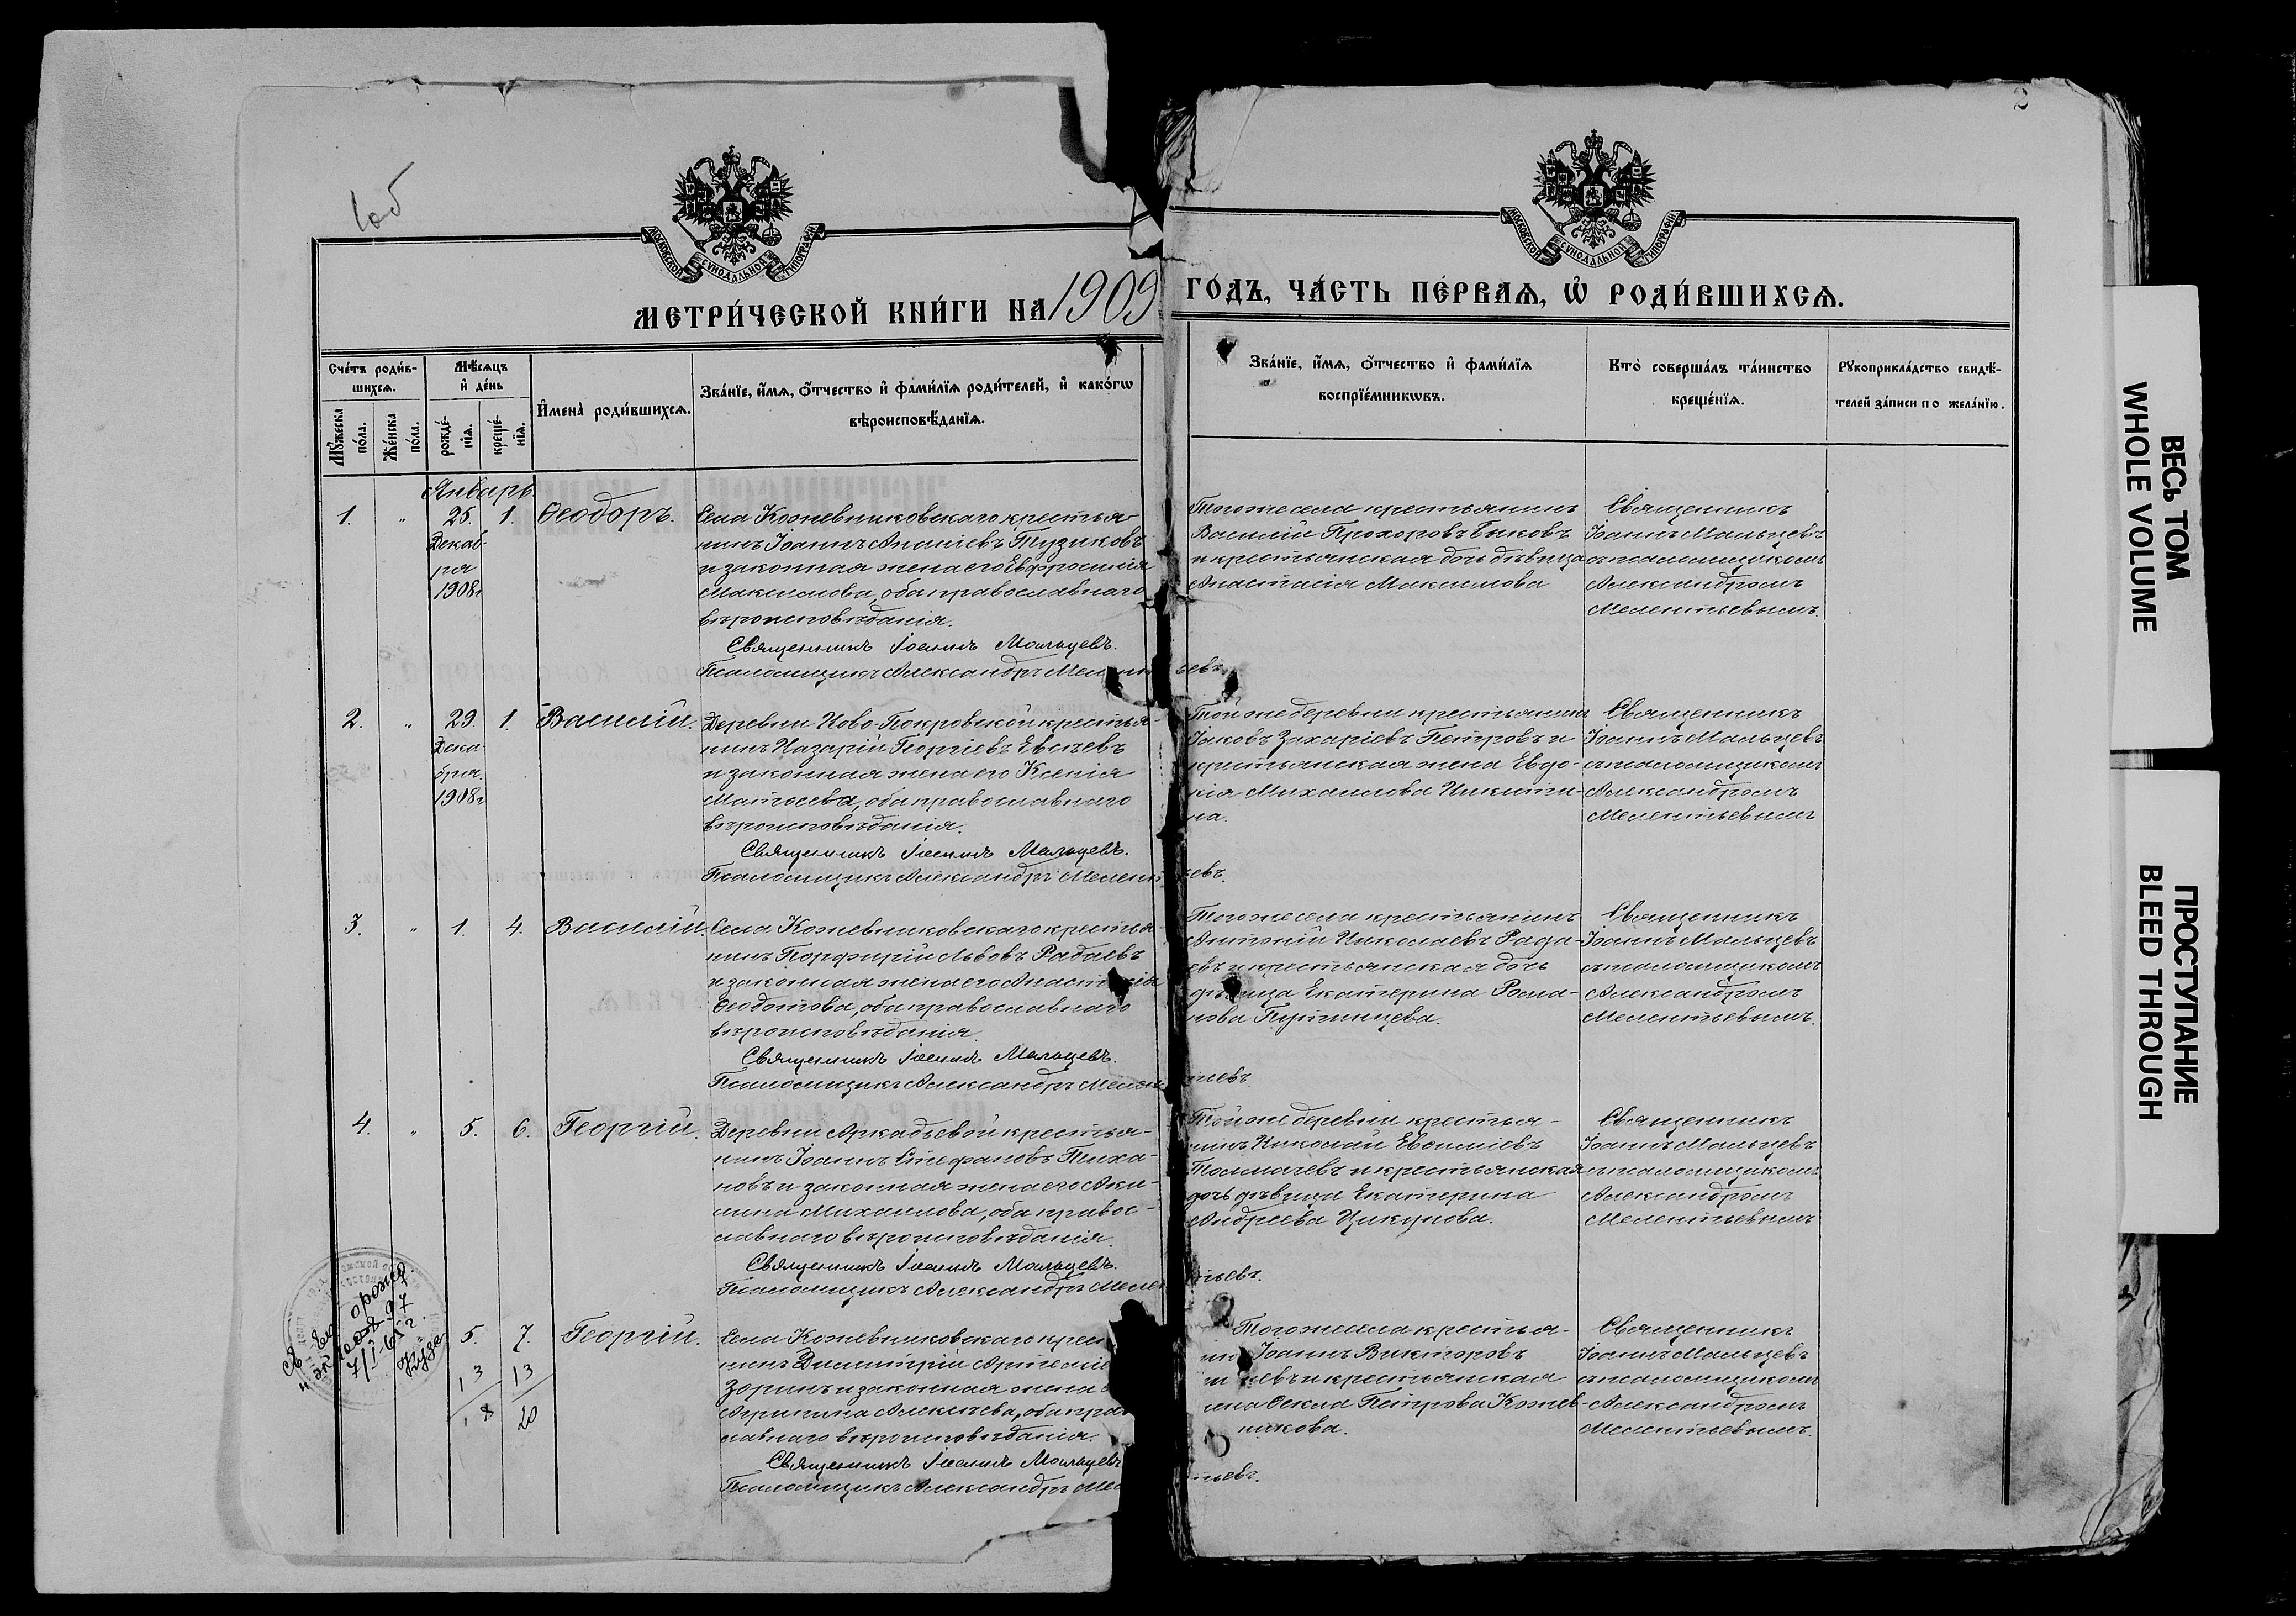 1об
2
МОСКОВСКОЙ СѴНОДАЛЬНОЙ ТИПОГРАФІИ
МОСКОВСКОЙ СѴНОДАЛЬНОЙ ТИПОГРАФІИ
МЕТРИ́ЧЕСКОЙ КНИ́ГИ НА 1909 ГО́ДЪ, ЧА́СТЬ ПЕ́РВАѦ, Ѡ҆ РОДИ́ВШИХСѦ.
Сче́тъ роди́в-
шихсѧ.
Мꙋ́жеска по́ла.
Же́нска по́ла.
Мѣ́сѧцъ
и҆ де́нь
рожде́-
нїѧ.
креще́-
нїѧ.
И҆мена̀ роди́вшихсѧ.
Зва́нїе, и҆́мѧ, ѻ҆́тчество и҆ фами́лїѧ роди́телей, и҆ како́гѡ
вѣроисповѣ́данїѧ.
Зва́нїе, и҆́мѧ, ѻ҆́тчество и҆ фами́лїѧ
воспрїе́мникѡвъ.
Кто̀ соверша́лъ та́инство
креще́нїѧ.
Рꙋкоприкла́дство свидѣ́-
телей за́писи по жела́нїю.
Январь
1. „ 25. 1. Ѳеодоръ.
Декаб-
ря
1908г
Села Кожевниковскаго крестья-
нинъ Іоаннъ Ананіевъ Тузиковъ
и законная жена его Евфросинія
Максимова, оба православнаго
вѣроисповѣданія.
Священникъ Іоаннъ Мальцевъ.
Псаломщикъ Александръ Мелентьевъ.
Того же села крестьянинъ
Василій Прохоровъ Быковъ
и крестьянская дочь дѣвица
Анастасія Максимова
Священникъ
Іоаннъ Мальцевъ
съ псаломщикомъ
Александромъ
Мелентьевымъ.
2. „ 29. 1. Василій.
Дека-
бря
1908г
Деревни Ново-Покровской крестья-
нинъ Назарій Георгіевъ Евсѣевъ
и законная жена его Ксенія
Матѳеева, оба православнаго
вѣроисповѣданія.
Священникъ Іоаннъ Мальцевъ.
Псаломщикъ Александръ Мелентьевъ.
Той же деревни крестьянинъ
Іаковъ Захаріевъ Петровъ и
крестьянская жена Евдо-
кія Михаилова Никити-
на.
Священникъ
Іоаннъ Мальцевъ
съ псаломщикомъ
Александромъ
Мелентьевымъ
3. „ 1. 4. Василій.
Села Кожевниковскаго крестья-
нинъ Порфирій Львовъ Радаевъ
и законная жена его Анастасія
Ѳеодотова, оба православнаго
вѣроисповѣданія.
Священникъ Іоаннъ Мальцевъ.
Псаломщикъ Александръ Мелентьевъ.
Того же села крестьянинъ
Антоній Николаевъ Рада-
евъ и крестьянская дочь
дѣвица Екатерина Рома-
нова Путинцева.
Священникъ
Іоаннъ Мальцевъ
съ псаломщикомъ
Александромъ
Мелентьевымъ.
4. „ 5. 6. Георгій.
Деревни Аркадьевой крестья-
нинъ Іоаннъ Стефановъ Тиха-
новъ и законная жена его Аки-
лина Михаилова, оба правос-
лавнаго вѣроисповѣданія.
Священникъ Іоаннъ Мальцевъ.
Псаломщикъ Александръ Мелентьевъ.
Той же деревни крестья-
нинъ Николай Евсиміевъ
Толмачевъ и крестьянская
дочь дѣвица Екатерина
Андреева Цикунова.
Священникъ
Іоаннъ Мальцевъ
съ псаломщикомъ
Александромъ
Мелентьевымъ
5. 7. Георгій.
13 13
18 20
Села Кожевниковскаго крес
нинъ Димитрій Артеміе
Зоринъ и законная жена
Агрипина Алексѣева, оба пра
славнаго вѣроисповѣданія.
Священникъ Іоаннъ Мальцевъ
Псаломщикъ Александръ Ме тьевъ.
Того же села крестья-
Іоаннъ Викторовъ
евъ и крестьянская
жена Ѳекла Петрова Кожев-
никова.
Священникъ
Іоаннъ Мальцевъ
съ псаломщикомъ
Александромъ
Мелентьевымъ.
7/I-65г.
ВЕСЬ ТОМ
WHOLE VOLUME
ПРОСТУПАНИЕ
BLEED THROUGH